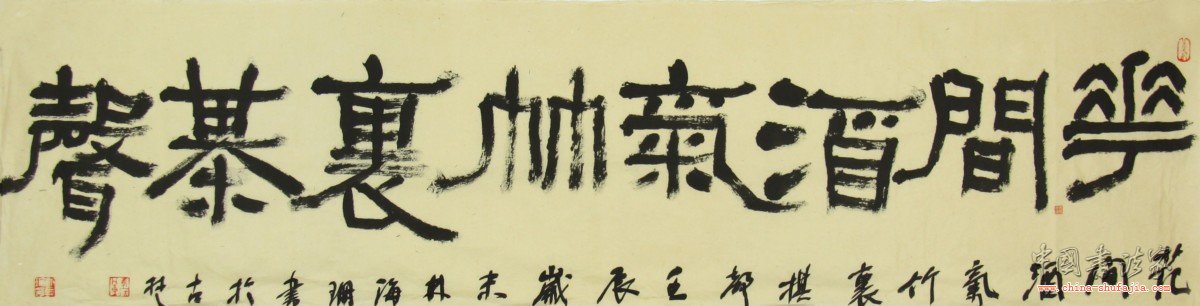 華間酒氣竹裏棊聲
花間酒氣竹裏棋聲壬辰歲末林海珊書於古楚
中国书法家
www.china-shufajia.com